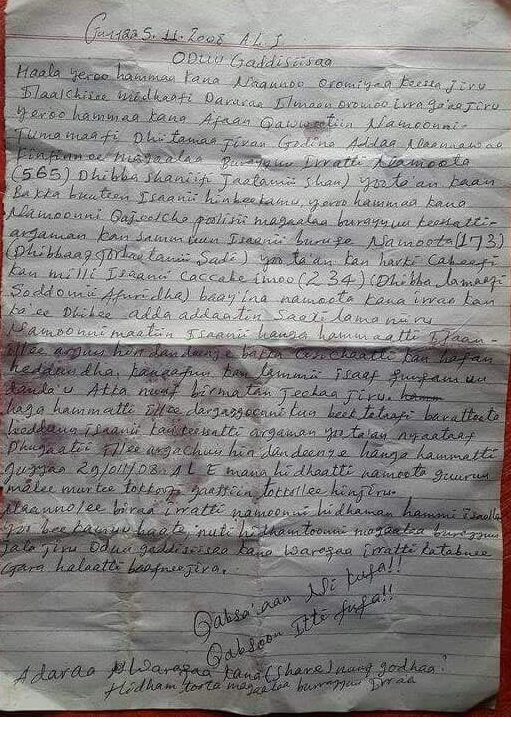 Guyyaa 5.11.2008 A.L.I.
Oduu Gaddisiisaa
Haala yeroo hammaa kana Naannoo Oromiyaa keessa jiru
Ilaalchisee midhaafi Dararaa Ilmaan oromoo irra ga'ee jiru
yeroo hammaa kana Afaan Qawweetiin Namoonni
Tumamaafi Dhiitamaa jiran Godina Addaa Naannawaa
Finfinnee magaalaa Burayyuu Irratti Namoota
(565) Dhibba shaniifi Jaatamii shan) yoo ta'an kaan
Bakka buuteen Isaanii hinbeekamu, yeroo hammaa kana
Namoonni Qajeelcha poolisii magaalaa burayyuu keessatti
argaman kan sammuun Isaanii buruqe Namoota (173)
(Dhibbaaf Torbaatamii Sadi) yoo ta'an kan harki Cabeefi
kan milli Isaanii Caccabe immoo (234) (Dhibba lamaafi
Soddomii Afuridha) baay'ina namoota kana irraa kan
ka'ee Dhibee adda addaatiin
Namoonni maatiin Isaanii hanga hammaatti Ijaan
illee arguu hin dandeenye bakka
hedduudha. kan lammii isaaf
danda'u Akka nuuf birmatan
haga hammatti illee beektotaafi barattoota
hedduu isaanii kan keessatti argaman yoo ta'an nyaataaf
Dhugaatii illee argachuu hin dandeenye hanga hammatti
guyyaa 29/011/08 A L E mana hidhaatti namoota guuruu
malee murtee tokko illee hinjiru.
Naannolee biraa irratti namoonni hidhaman hammi isaa
yoo bee nuti hidhamtoonni magaalaa burayyuu
jala jiru Oduu gaddisiisaa kana Waraqaa irratti katabnee
Gara halaatti baafnee jira.
Qabsa'aan Ni kufa!!
Qabsoon Itti fufa!!
Adaraa Waraqaa kana (share) nuuf godhaa?
Hidhamtoota magaalaa burrayyuu Irraa